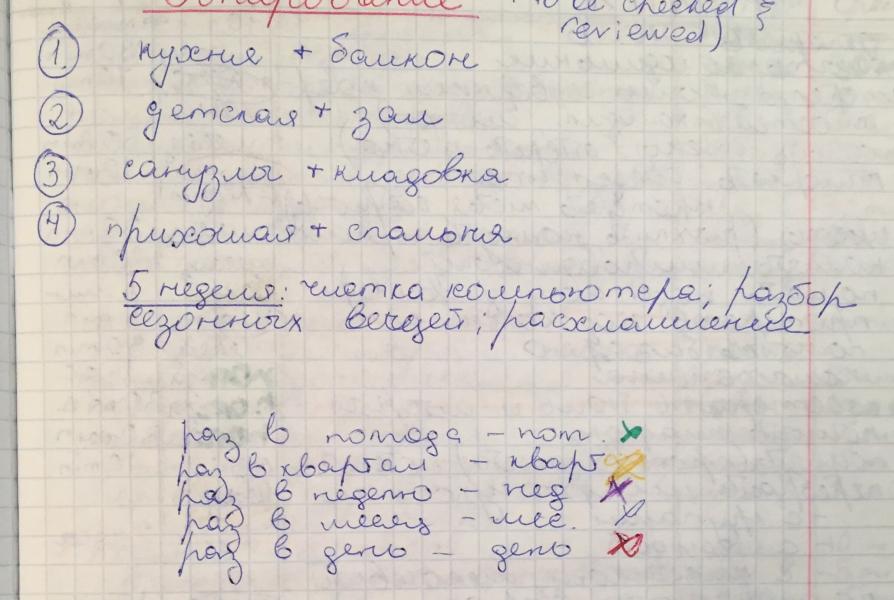 to be checked &
reviewed)
1. кухня + балкон
2 детская + зал
3 санузлы + кладовка
4 прихожая + спальня
5 неделя: чистка компьютера; разбор
сезонных вещей; расхламление
раз в полгода - пол.
раз в квартал - кварт
раз в неделю - нед
раз в месяц - мес.
раз в день - день